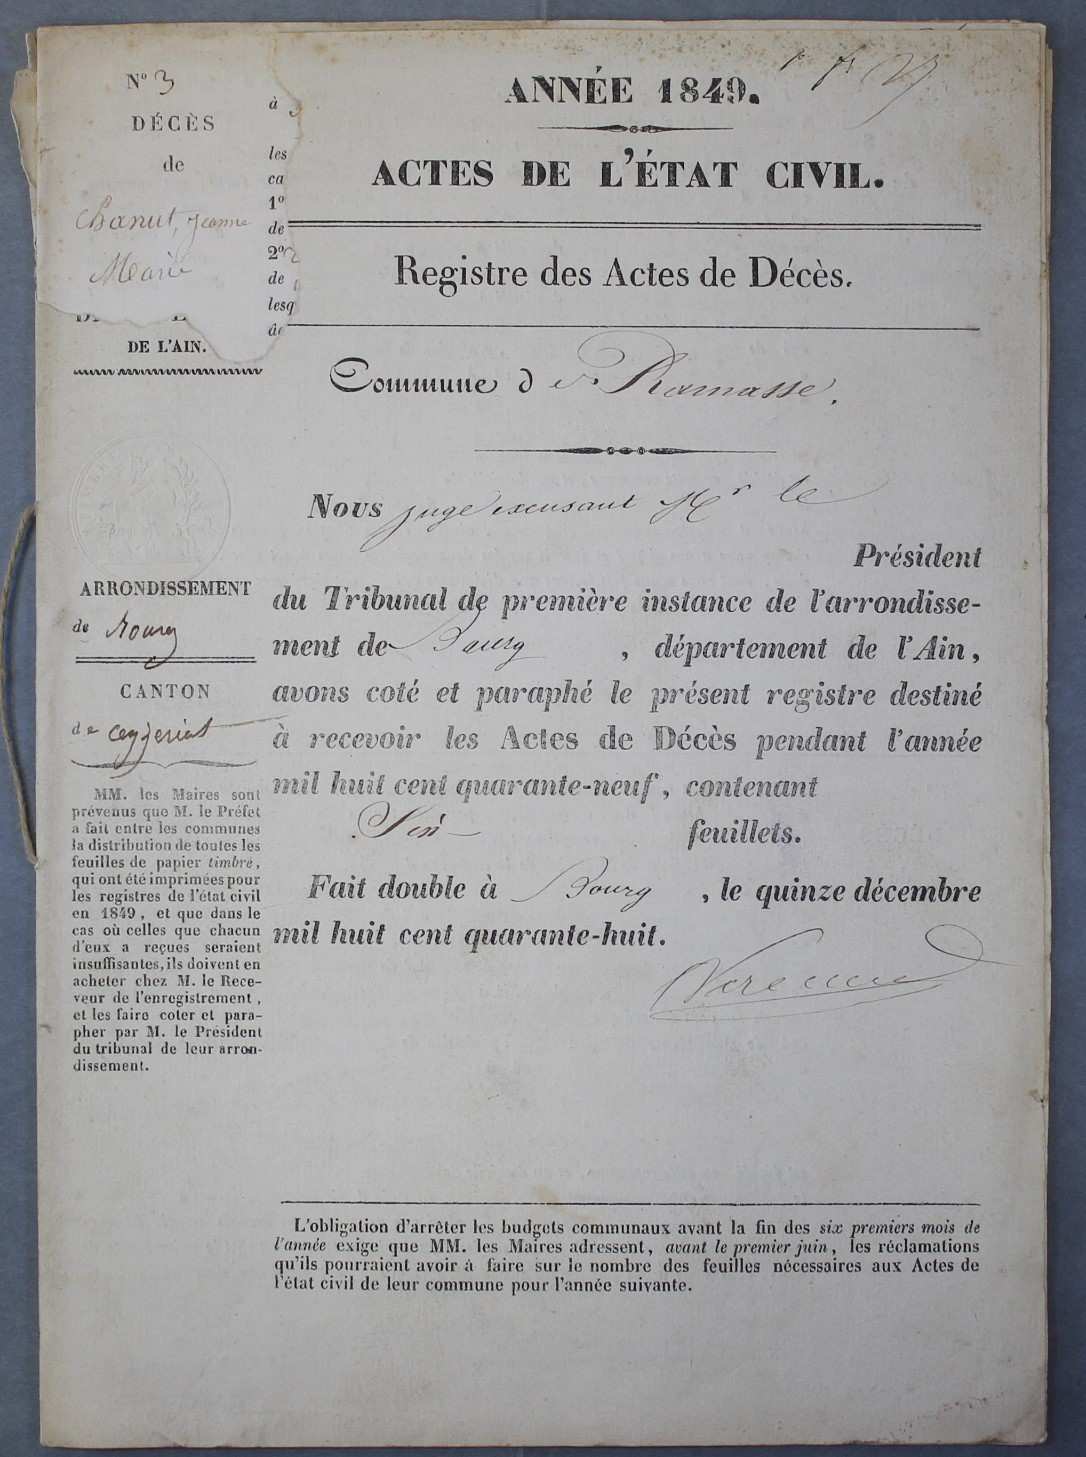 N° 3
DÉCÈS
de
Chanut, Jeanne
Marie
DE L'AIN.
à
les
ca
1°
de
2°
de
lesq
de
ARRONDISSEMENT
de Bourg
CANTON
de Ceyzeriat
MM. les Maires sont
prévenus que M. le Préfet
a fait entre les communes
la distribution de toutes les
feuilles de papier timbré,
qui ont été imprimées pour
les registres de l'état civil
en 1849, et que dans le
cas où celles que chacun
d'eux a reçues seraient
insuffisantes, ils doivent en
acheter chez M. le Rece-
veur de l'enregistrement,
et les faire coter et para-
pher par M. le Président
du tribunal de leur arron-
dissement.
ANNÉE 1849.
ACTES DE L'ÉTAT CIVIL.
Registre des Actes de Décès.
Commune de Ramasse.
Nous juge excusant Mr le
Président
du Tribunal de première instance de l'arrondisse-
ment de Bourg, département de l'Ain,
avons coté et paraphé le présent registre destiné
à recevoir les Actes de Décès pendant l'année
mil huit cent quarante-neuf, contenant
Six feuillets.
Fait double à Bourg, le quinze décembre
mil huit cent quarante-huit.
L'obligation d'arrêter les budgets communaux avant la fin des six premiers mois de
l'année exige que MM. les Maires adressent, avant le premier juin, les réclamations
qu'ils pourraient avoir à faire sur le nombre des feuilles nécessaires aux Actes de
l'état civil de leur commune pour l'année suivante.